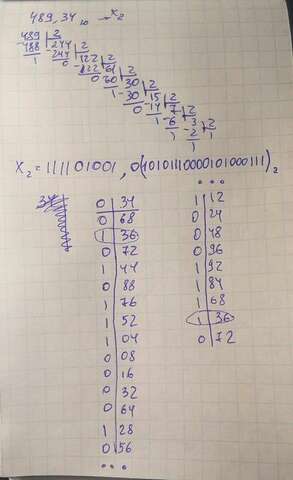 489,34₁₀ → x₂
489 | 2
-488 | 244 | 2
1 -244 | 122 | 2
0 -122 | 61 | 2
0 -60 | 30 | 2
1 -30 | 15 | 2
0 -14 | 7 | 2
1 -6 | 3 | 2
1 -2 | 1
1
X₂ = 111101001, 0(10101110000101000111)₂
0 | 34
0 | 68
1 | 36
0 | 72
1 | 44
0 | 88
1 | 76
1 | 52
1 | 04
0 | 08
0 | 16
0 | 32
0 | 64
1 | 28
0 | 56
...
...
1 | 12
0 | 24
0 | 48
0 | 96
1 | 92
1 | 84
1 | 68
1 | 36
0 | 72